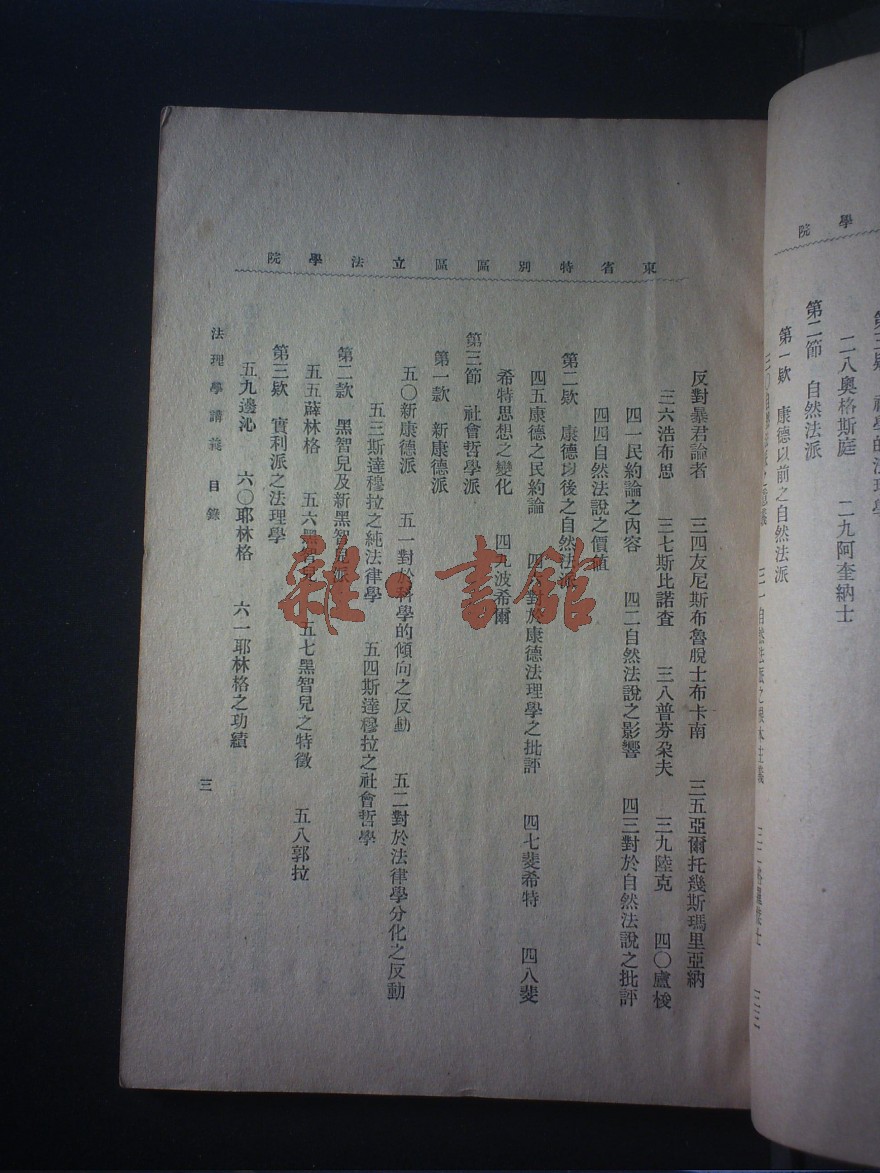 學院
第二節 自然法派
第一欵 康德以前之自然法派
二八奧格斯庭 二九阿奎納士
東省特別區區立法學院
反對暴君論者 三四友尼斯布魯脫士布卡南 三五亞爾托幾斯瑪里亞納
三六浩布思 三七斯比諾査 三八普芬朶夫 三九陸克 四〇盧梭
四一民約論之內容 四二自然法說之影響 四三對於自然法說之批評
四四自然法說之價值
第二欵 康德以後之自然法派
四五康德之民約論 四六對於康德法理學之批評 四七斐希特 四八斐
希特思想之變化 四九波希爾
第三節 社會哲學派
第一款 新康德派
五〇新康德派 五一對於科學的傾向之反動 五二對於法律學分化之反動
五三斯達穆拉之純法律學 五四斯達穆拉之社會哲學
第二款 黑智兒及新黑智兒派
五五薛林格 五六黑智兒 五七黑智兒之特徵 五八郭拉
第三欵 實利派之法理學
五九邊沁 六〇耶林格 六一耶林格之功績
法理學講義 目錄
三
雜·書館